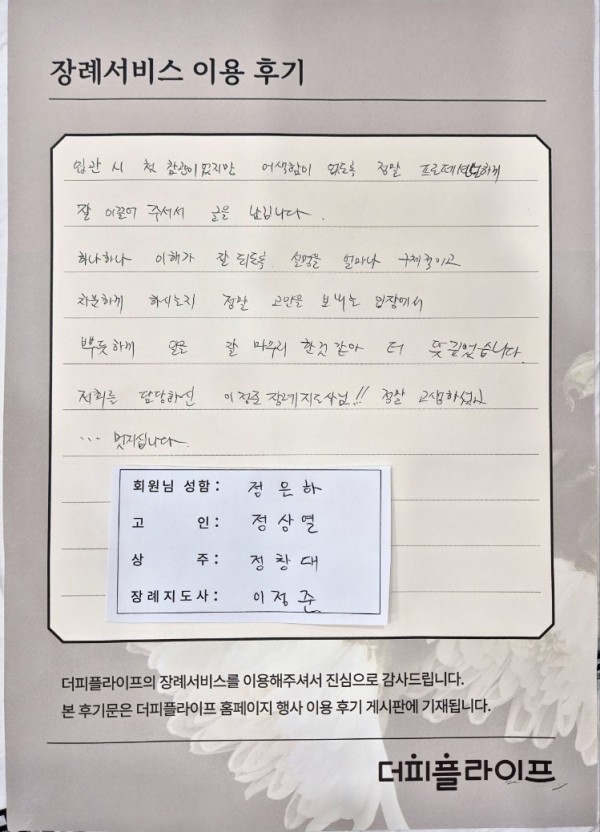 장례서비스 이용 후기
입관 시 첫 참관이였지만 어색함이 없도록 정말 프로페셔널하게
잘 이끌어 주셔서 글을 남깁니다.
하나하나 이해가 잘 되도록 설명을 얼마나 구체적이고
차분하게 하시는지 정말 고인을 보내는 입장에서
뿌듯하게 잘 마무리 한것 같아 더 뜻 깊었습니다.
저희를 담당하신 이정준 장례지도사님!! 정말 고생하셨고
... 멋지십니다.
회원님 성함 : 정은하
고 인 : 정상열
상 주 : 정창대
장례지도사 : 이정준
더피플라이프의 장례서비스를 이용해주셔서 진심으로 감사드립니다.
본 후기문은 더피플라이프 홈페이지 행사 이용 후기 게시판에 기재됩니다.
더피플라이프